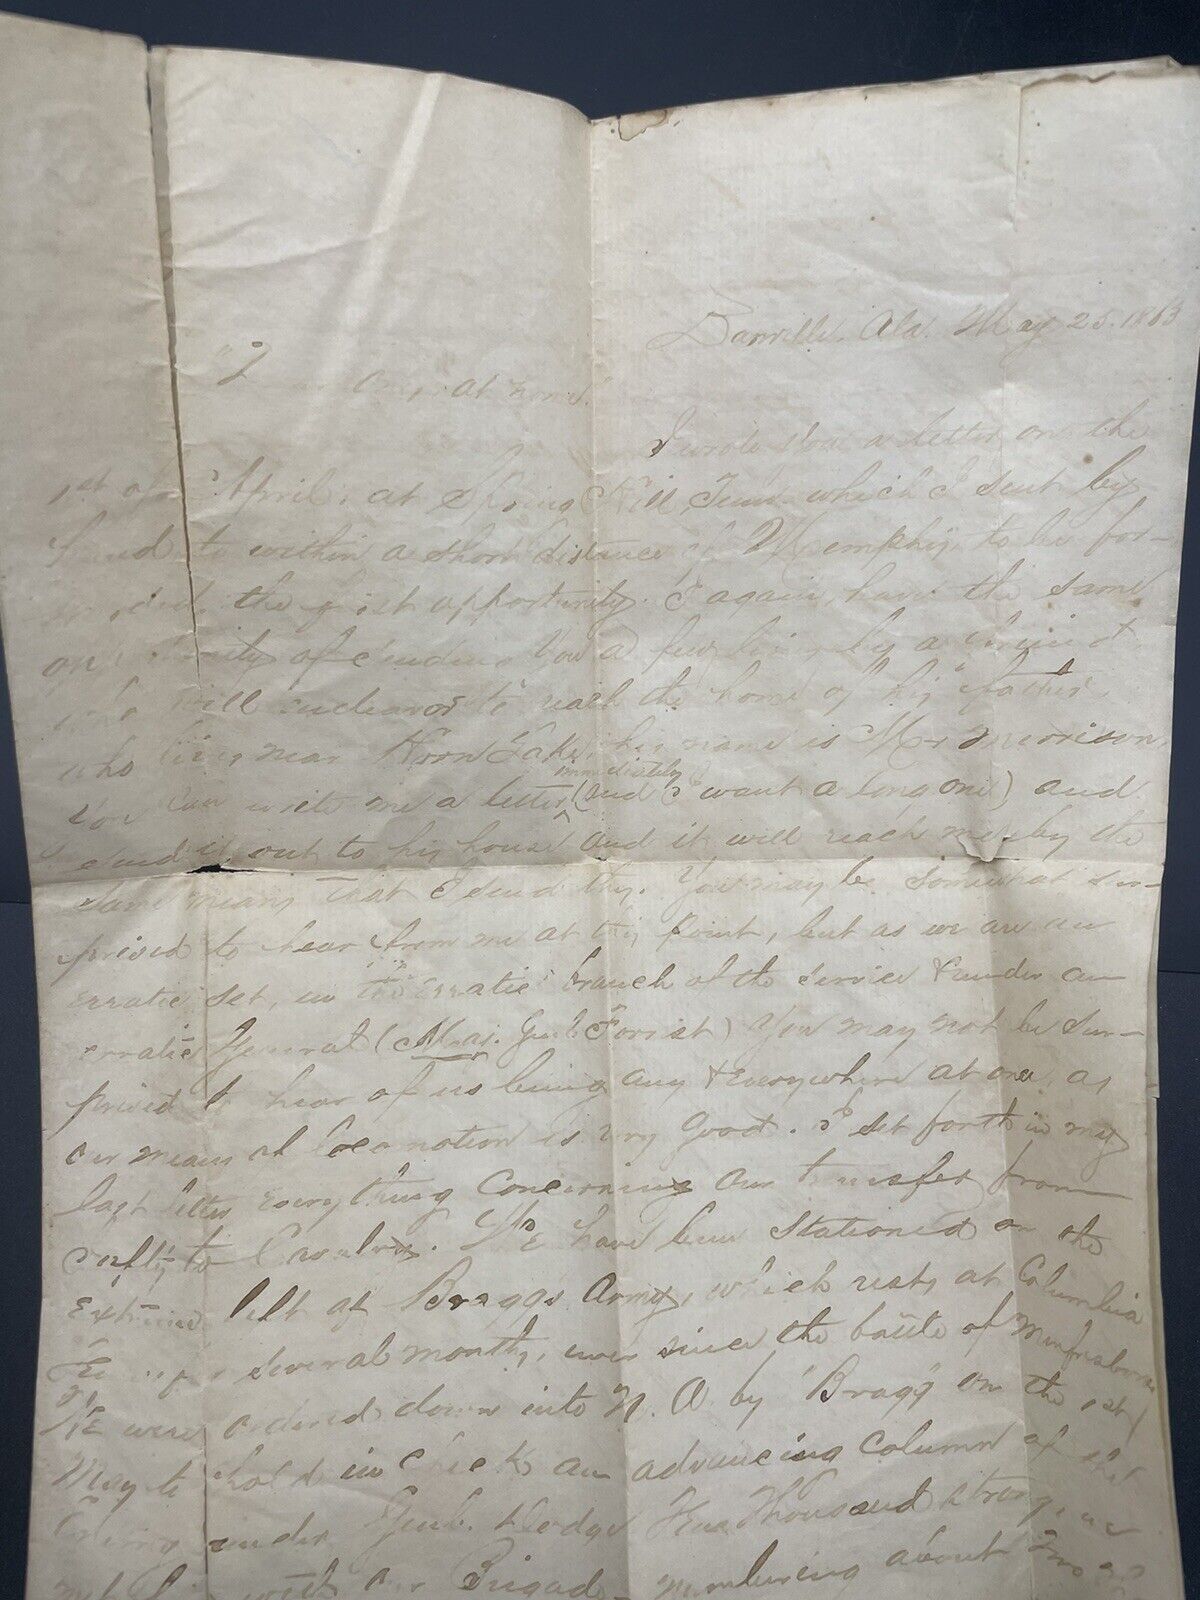 Danville, Ala. May 25. 1863
Dear Ones at home
I wrote you a letter on the
1st of April, at Spring Hill Tenn. which I sent by
hand to within a short distance of Memphis to be for-
warded the first opportunity. I again have the same
opportunity of sending you a few lines by a friend
who will endeavor to reach the home of his father
who lives near Horn Lake, his name is Mr Morrison,
you can write me a letter immediately (and I want a long one) and
send it out to his house and it will reach me by the
same means that I send this. You may be somewhat sur-
prised to hear from me at this point, but as we are an
erratic set, in the erratic branch of the service & under an
erratic General (Maj. Genl. Forrest) You may not be sur-
prised to hear of us being any & everywhere at once, as
our means of locomotion is very good. I set forth in my
last letter everything concerning our transfer from
to Cavalry. We have been stationed on the
extreme left of Braggs Army, which rests at Columbia
for several months, ever since the battle of Murfresboro
We were ordered down into N. A. by "Bragg" on the 1st
May to hold in check an advancing column of the
under Genl. Dodge Ten Thousand strong, we
with our Brigade numbering about Two